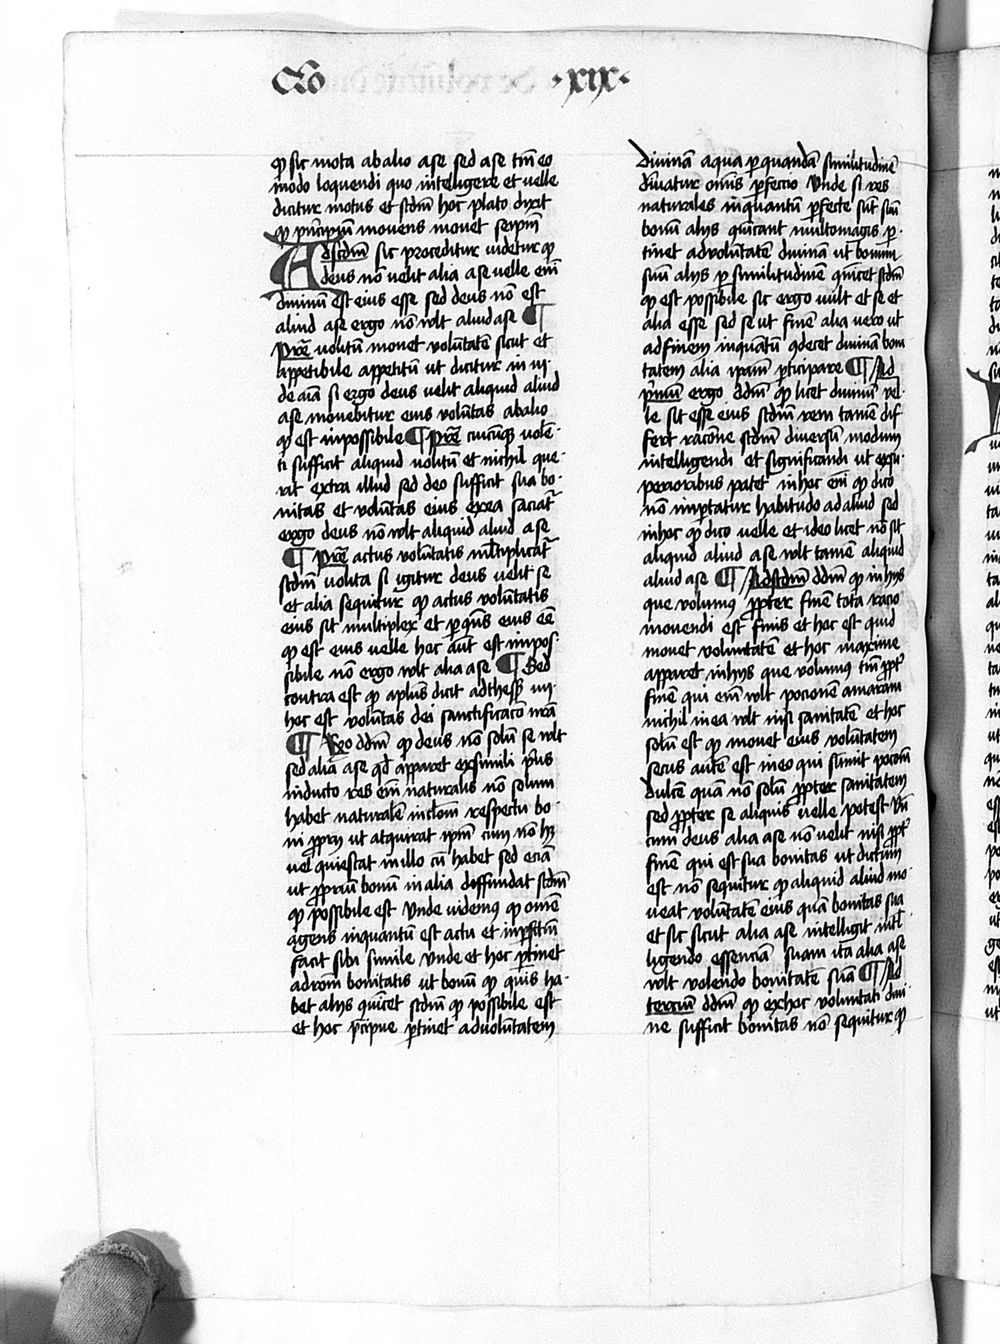 Qō ·xix·
ꝙ sic mota ab alio a se sed a se tm̄ eo
modo loquendi quo intelligere et velle
dicitur motus et scd̄m hoc plato dixit
ꝙ primum movens movet seip̄m
Ad scd̄m sic proceditur videtur ꝙ
deus nō velit alia a se velle em̄
divinū est eius esse sed deus nō est
aliud a se ergo nō vult aliud a se ¶
Pret̄ volitū movet volūtatē sicut et
appetibile appetitū ut dicitur in iii
de aīa si ergo deus velit aliquid aliud
a se movebitur eius volūtas ab alio
ꝙ est impossibile ¶ Pret̄ cuicūqꝫ volē-
ti sufficit aliquid volitū et nichil que-
rit extra illud sed deo sufficit sua bo-
nitas et volūtas eius ex ea saciat̄
ergo deus nō vult aliquid aliud a se
¶ Pret̄ actus volūtatis ml̄tiplicat̄
scd̄m volita si igitur deus velit se
et alia sequitur ꝙ actus volūtatis
eius sit multiplex et ꝑ ꝯn̄s eius eē
ꝙ est eius velle hoc aūt est impos-
sibile nō ergo vult alia a se ¶ Sed
contra est ꝙ apl̄us dicit ad thess̄ iiii
hec est volūtas dei sanctificacō vr̄a
¶ Rn̄o dd̄m ꝙ deus nō solū se vult
sed alia a se qd̄ apparet ex simili p̄us
inducto res em̄ naturalis nō solum
habet naturalē incl̄om̄ respectu bo-
ni ꝓprij ut acquirat ip̄m cum nō hꝫ
vel quiescat in illo cū habet sed eciā
ut ꝓpriū bonū in alia diffundat scd̄m
ꝙ possibile est Unde videmꝰ ꝙ omē
agens inquantū est actu et ꝑfectū
facit sibi simile Unde et hoc ꝑtinet
ad rōm bonitatis ut bonū ꝙ quis ha-
bet alijs cōicet scd̄m ꝙ possibile est
et hoc p̄cipue ꝑtinet ad volūtatem
divinā a qua ꝑ quandā similitudinē
dirivatur omīs ꝑfeccio Unde si res
naturales inquantū ꝑfecte sūt suū
bonū alijs cōicant multomagis ꝑ-
tinet ad volūtatē divinā ut bonum
suū alijs ꝑ similitudinē cōicet scd̄m
ꝙ est possibile sic ergo vult et se et
alia esse sed se ut finē alia vero ut
ad finem inquantū ꝯdecet divinā boni
tatem alia ipam̄ ꝑticipare ¶ Ad
p̄mū ergo dd̄m ꝙ licet divinū vel-
le sit esse eius scd̄m rem tamē dif
fert racōne scd̄m diversū modum
intelligendi et significandi ut ex su-
perioribus patet in hoc em̄ ꝙ dico
nō importatur habitudo ad aliud sed
in hoc ꝙ dico velle et ideo licet nō sit
aliquid aliud a se vult tamē aliquid
aliud a se ¶ Ad scd̄m dd̄m ꝙ in hijs
que volumꝰ ꝓpter finē tota racio
movendi est finis et hoc est quid
movet voluntatē et hoc maxime
apparet in hijs que volumꝰ tm̄ ꝓpt̄
finē qui em̄ vult pocionē amaram
nichil in ea vult nisi sanitatē et hoc
solū est ꝙ movet eius volūtatem
secus autē est in eo qui sumit pocōem
dulcē quā nō solū ꝓpter sanitatem
sed ꝓpter se aliquis velle potest Un̄
cum deus alia a se nō velit nisi ꝓpt̄
finē qui est sua bonitas ut dictum
est nō sequitur ꝙ aliquid aliud mo-
veat volūtatē eius quā bonitas sua
et sic sicut alia a se intelligit intel
ligendo essenciā suam ita alia a se
vult volendo bonitatē suā ¶ Ad
tercium dd̄m ꝙ ex hoc voluntati divi-
ne sufficit bonitas nō sequitur ꝙ